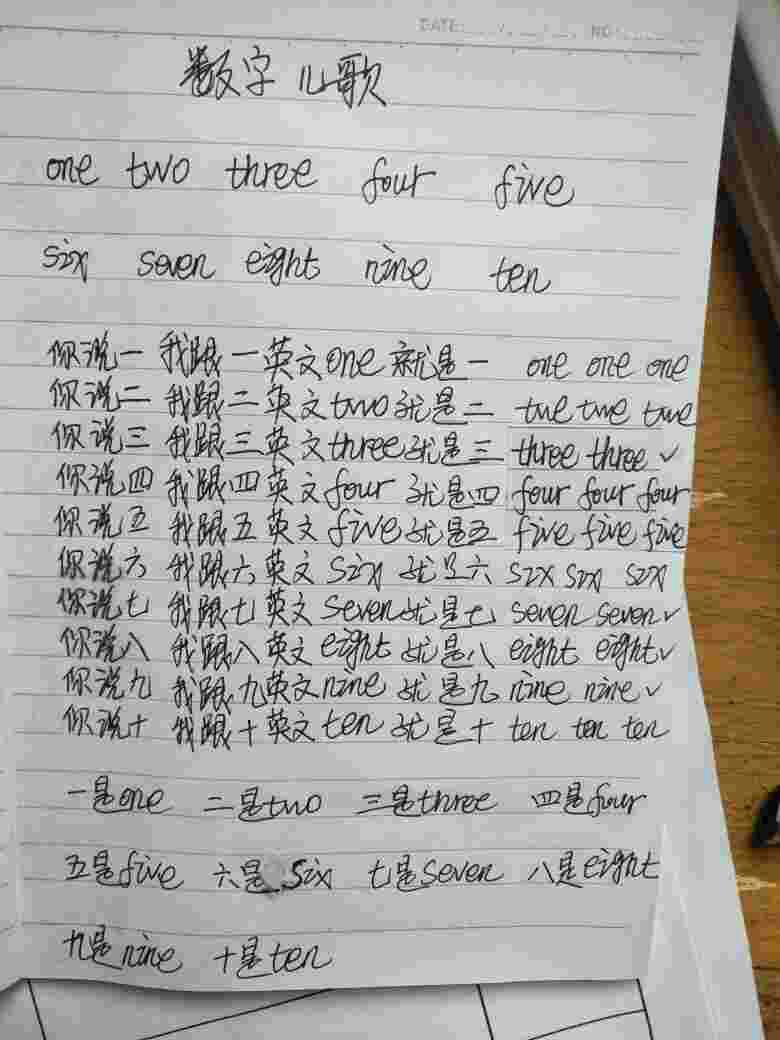 DATE: NO:
数字儿歌
one two three four five
six seven eight nine ten
你说一 我跟一英文one就是一 one one one
你说二 我跟二英文two就是二 twe twe twe
你说三 我跟三英文three就是三 three three ✓
你说四 我跟四英文four就是四 four four four
你说五 我跟五英文five就是五 five five five
你说六 我跟六英文six就是六 six six six
你说七 我跟七英文seven就是七 seven seven ✓
你说八 我跟八英文eight就是八 eight eight ✓
你说九 我跟九英文nine就是九 nine nine ✓
你说十 我跟十英文ten就是十 ten ten ten
一是one 二是two 三是three 四是four
五是five 六是six 七是seven 八是eight
九是nine 十是ten